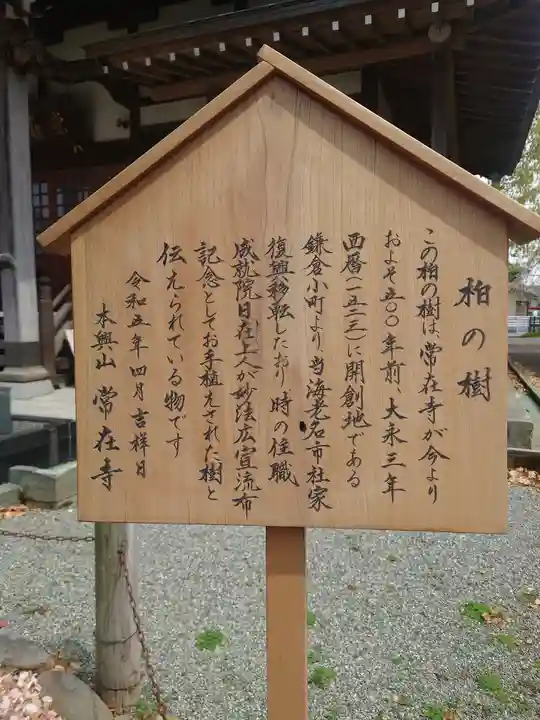 柏の樹
この柏の樹は、常在寺が今より
およそ五〇〇年前、大永三年
西暦(一五二三)に開創地である
鎌倉小町より当海老名市社家
復興移転したおり時の住職
成就院日在上人が妙法広宣流布
記念としてお手植えされた樹と
伝えられている物です
令和五年四月吉祥日
本興山 常在寺